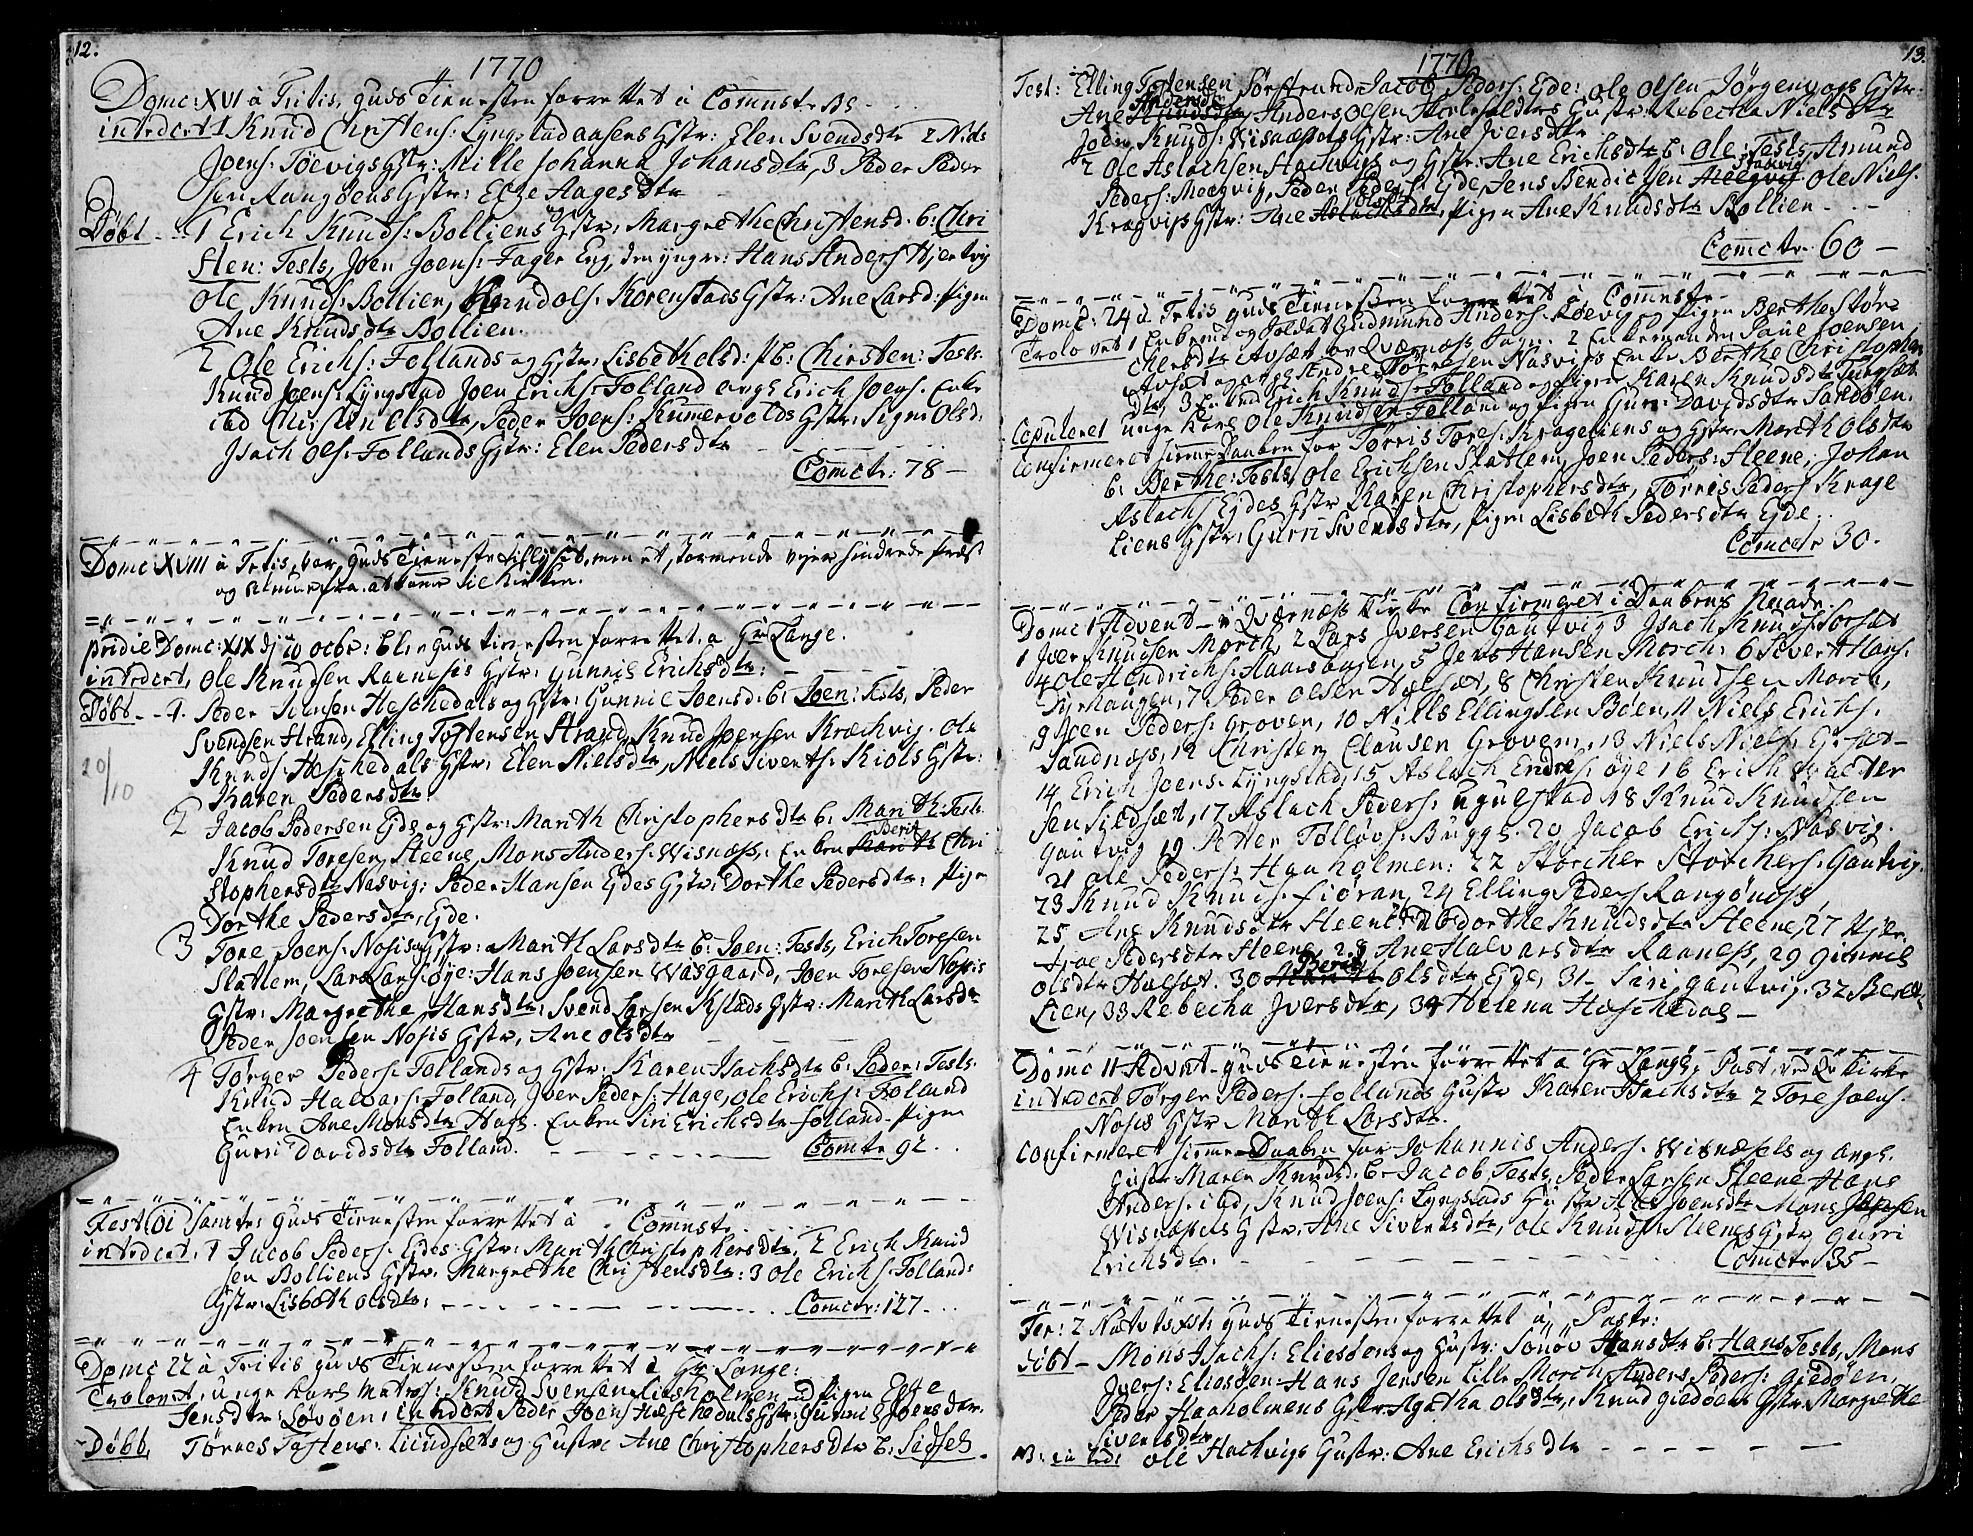 12.
1770
Domc: XVI à Tritis, Guds Tienesten forrettet à Comnstr BS
introdcert 1 Knud Christens: Lyngstadaasens Gstr: Elen Svendsdtr 2 Nids
Joens: Töevigs Gstr: Mille Johanna Johansdtr, 3 Peder Peder
sen Rangöens Gstr: Eltze Aagesdtr
Döbt 1 Erich Knuds: Bolliens Gstr, Margrethe Christensd. b: Chri
sten: Tests, Joen Joens: Fager Eng, den yngre: Hans Anders Hjertvig
Ole Knuds: Bollien, Ols: Korenstads Gstr: Ane Larsd: Pigen
Ane Knudsdtr Bollien.
2 Ole Erichs: Follands og Gstr: Lisbeth Olsd: b: Chirsten: Tests.
Knud Joens: Lyngstad Joen Erichs: Folland Erich Joens. Enke
ibd Chirsten Olsdtr, Peder Joens: Kummervolds Gstr: Signi Olsd:
Isach Ols: Follands Gstr: Elen Pedersdtr
Comctr: 78 —
Domc: XVIII à Tritis, var Guds Tieneste men et stormende vejer hindrede Præst
og Almue fra at komme til Kirken.
pridie Domc: XIX d 20 octbr: blev Guds tienesten forrettet a Hr Lange.
introdcert, Ole Knudsen Raanesis Gstr: Gunnil Erichsdtr:
Döbt 1. Peder Jensen Heschedals og Gstr: Gunnil Joensd: b: Joen: Tests, Peder
Svendsen Strand, Elling Tostensen Strand, Knud Joensen Kræchvig. Ole
Knuds: Heschedals Gstr: Elen Nielsdtr, Niels Siverts: Kiöls Gstr:
Karen Pedersdtr.
20/10
2 Jacob Pedersen Eide og Gstr: Marith Christophersdtr b: Marith: Tests
Knud Toresen Steene, Mons Anders: Wisnæss, Enken Berit Chri
stophersdtr Nasvig: Peder Hansen Eides Gstr: Dorthe Pedersdtr: Pigen
Dorthe Pedersdtr, Eide.
3 Tore Joens: Nosis og Gstr: Marith Larsdtr b: Joen: Tests, Erich Toresen
Slatlem, Lars Larsiöye: Hans Joensen Wasgaard, Joen Toresen Nosis
Gstr: Margrethe Hansdtr: Svend Larsen Gstr: Marith Larsdtr
Peder Joensen Nosis Gstr, Ane Olsdtr
4 Törger Peders: Follands og Gstr: Karen Isachsdtr b: Peder: Tests.
Knud Halvars: Folland, Joen Peders: Hage, Ole Erichs: Folland
Enken Ane Monsdtr Hage. Enken Siri Erichsdtr Folland. Pigen
Gurri Davidsdtr Folland. Comctr 92.
Fest: Oi Sanctor Guds Tienesten forrettet à Comnstr.
introdcert: 1 Jacob Peders: Eides Gstr: Marith Christophersdtr, 2 Erich Knud
sen Bolliens Gstr. Margrethe Christensdtr: 3 Ole Erichs: Follands
Gstr: Lisbeth Olsdtr: Comctr: 127.
Domc 22 à Tritis Guds Tienesten forrettet à Hr Lange:
Trolovet, unge Karl Knud Svensen og Pigen
Jensdtr: Lövöen: introdcert Peder Joens: Heschedals Gstr: Gunnil Joensdtr.
Döbb. Tørres Tostens: og Gustr: Ane Christophersdtr b: Sidsel.
13.
1770
Test: Elling Tostensen Sörstrand Jacob Peders: Eide: Ole Olsen Jörgenvogs Gstr:
Ane Andersdtr, Anders Olsen Gustr: Rebecha Nielsdtr
Joen Knuds: Wisnæss Gstr: Ane Iversdtr
2 Ole Aslachsen Hachvigs og Gstr: Ane Erichsdtr b: Ole: Tests, Amund
Peders: Meegvig, Peder Peders: Eide, Jens Bendictsen Strandvig Ole Niels:
Krægvigs Gstr: Ane Olsdtr, Pigen Ane Knudsdtr Bollien
Comctr 60 —
Domc: 24 à Tritis Guds Tienesten forrettet à Comnstr.
Trolovet 1 og Soldat Gudmund Anders: Röevig og Pigen Berthe Stör
chersdtr Avsæt Qværnæss Sogn. 2 Enkemanden Povel Joensen
Avsæt og Endre Nasvigs Enke Berthe Christopher
dtr, 3 Erich Knuds: Folland og Pigen Karen Knudsdtr
Copuleret unge Karl Ole Knudsen Folland og Pigen Guri Davidsdtr Sandöen.
Confirmeret hieme Daaben for Torris Tores: Krageliens og Gstr: Marith Olsdtr
b: Berthe: Tests, Ole Erichsen Slatlem, Joen Peders: Steene, Johan
Aslachs: Eides Gstr Karen Christophersdtr, Torres Peders: Krage
liens Gstr: Gurri Svendsdtr, Pigen Lisbeth Pedersdtr Eide.
Comctr 30.
Domc 1 Advent i Qværness Kirke Confirmeret i Daabens Naade.
1 Joen Knudsen Morch, 2 Lars Iversen Gautvig 3 Isach Knuds: Torsæt
4 Ole Hendrichs: Haasbagen, 5 Jens Hansen Morch: 6 Sivert Hans:
Fyrhaugen, 7 Peder Olsen Holsæt, 8 Christen Knudsen Morch,
9 Joen Peders: Groven, 10 Niels Ellingsen Böen, 11 Niels Erichs:
Sandnæss, 12 Christen Clausen Groven, 13 Niels Niels: Eisæt
14 Erich Joens: Lyngstad, 15 Aslach Endres: Öye 16 Erich Halder
sen Sildsæt, 17 Aslach Peders: Ugulstad 18 Knud Knudsen
Gautvig 19 Petter Tollövs: Bugge. 20 Jacob Erichs: Nasvig.
21 Ole Peders: Haaholmen: 22 Störcher Störchers: Gautvig.
23 Knud Knuds: Fiöran, 24 Elling Peders: Rangönæss,
25 Ane Knudsdtr Steene: 26 Dorthe Knudsdtr Steene, 27 Hjer
troe Pedersdtr Steene, 28 Ane Halvarsdtr Raaness, 29 Giönnil
Olsdtr Holsæt. 30 Berit Olsdtr Eide, 31 Siri Gautvig. 32 Beret
Lien, 33 Rebecha Iversdtr, 34 Helena Haschedal —
Domc 11 Advnt Guds Tienesten forrettet a Hr Lange, Past. ved Qv Kirke
introdcert Törger Peders: Follands Gustr Karen Isachsdtr 2 Tore Joens:
Nosis Gstr Marith Larsdtr.
Confirmeret hieme Daaben for Johannis Anders: Wisnæsels og
Gustr Maren Knudsd: b: Jacob Tests, Peder Larsen Steene Hans
Anders: ibd, Knud Joens: Lyngstads Gustr Joensdtr Mons Jensen
Wisnæsels Gstr. Ane Sivertsdtr, Ole Knuds: Steenes Gstr Gurri
Erichsdtr. Comctr 35 —
Fer: 2 Natvts Xsti Guds Tienesten forrettet à Pastr:
Döbt Mons Isachs: Eliesöens og Gustr: Sönöv Hansdtr b: Hans Tests, Mons
Ivers: Eliesöen: Hans Jensen Lille Morch: Anders Peders: Giedöen,
Peder Haaholmens Gstr Agatha Olsdtr, Knud Giedöens Gstr. Margrethe
Sivertsdtr
NB: introd: Ole Hachvigs Gustr: Ane Erichsdtr